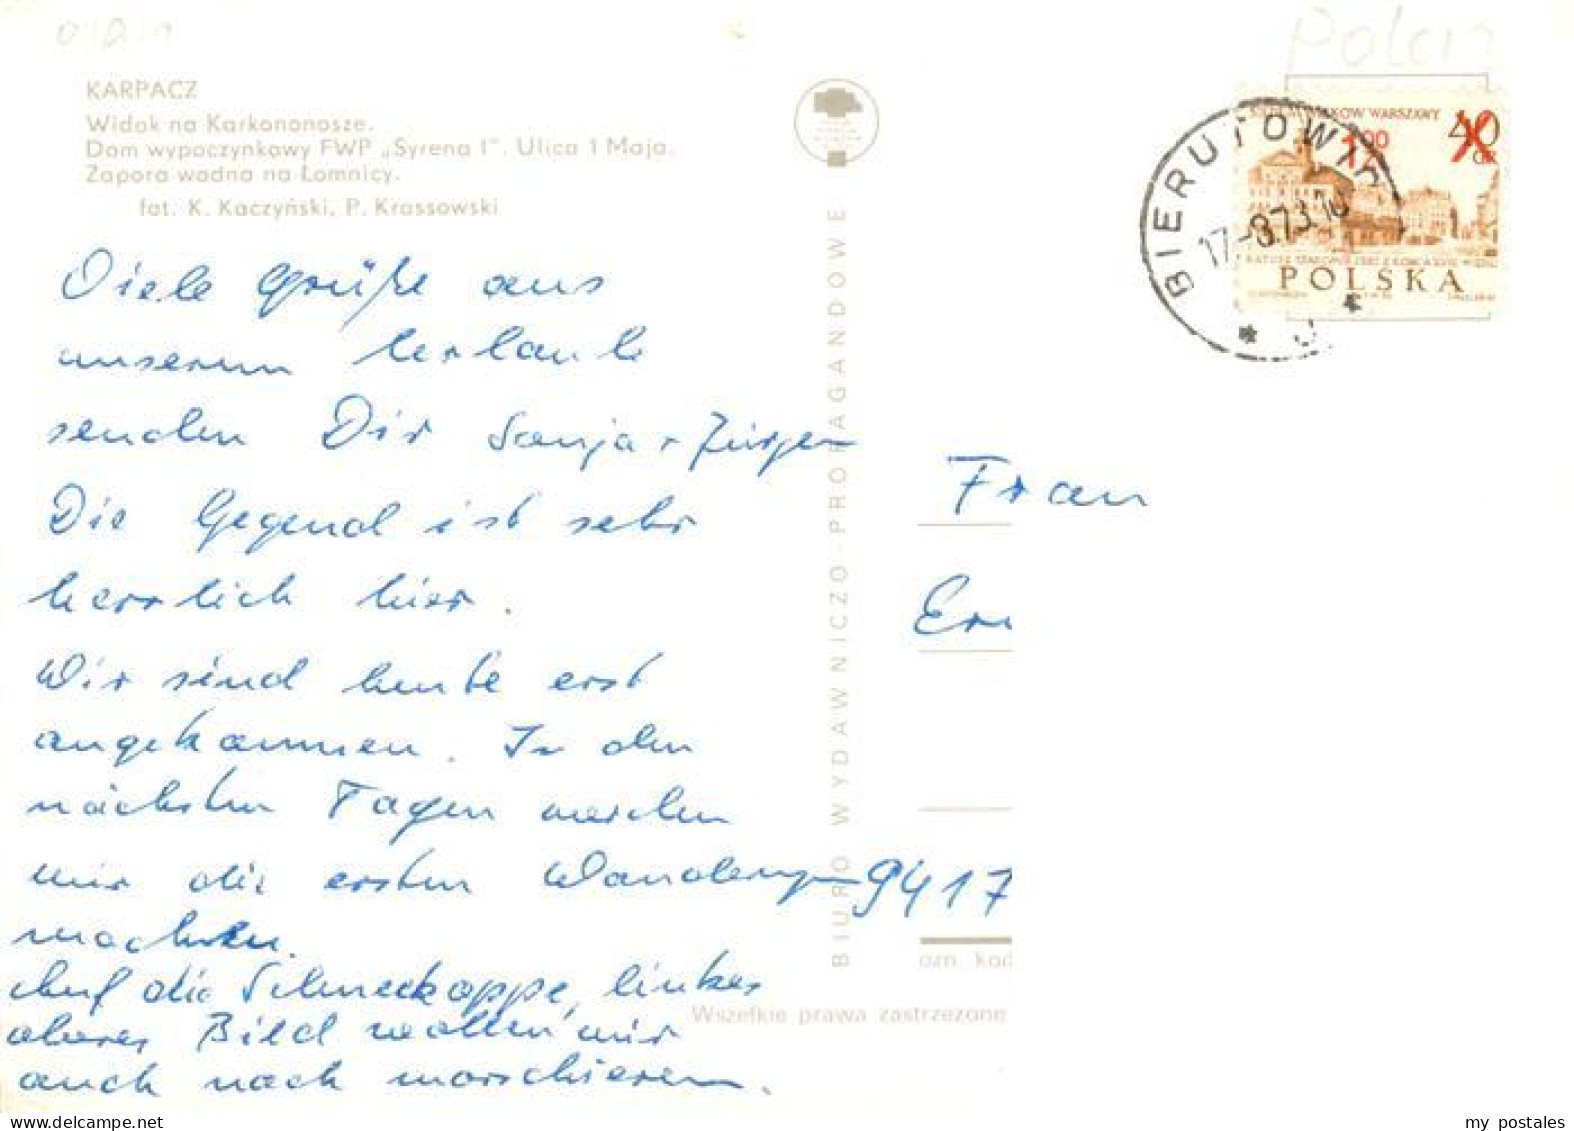 Polen
KARPACZ
Widok na Karkonosze.
Dom wypoczynkowy FWP „Syrena I". Ulica 1 Maja.
Zapora wodna na Łomnicy.
fot. K. Kaczyński, P. Krassowski
Viele Grüße aus
unserem Urlaub
senden Dir Sonja + Jürgen
Die Gegend ist sehr
herrlich hier.
Wir sind heute erst
angekommen. In den
nächsten Tagen werden
wir die ersten Wanderungen
machen.
Auf die Schneekoppe, linkes
oberes Bild wollen wir
auch noch marschieren.
BIURO WYDAWNICZO-PROPAGANDOWE
BIERUTOWIC
17.-8.73.10
WARSZAWY
40
GR
POLSKA
Frau
Er
9417
ozn. kod
Wszelkie prawa zastrzeżone
my postales